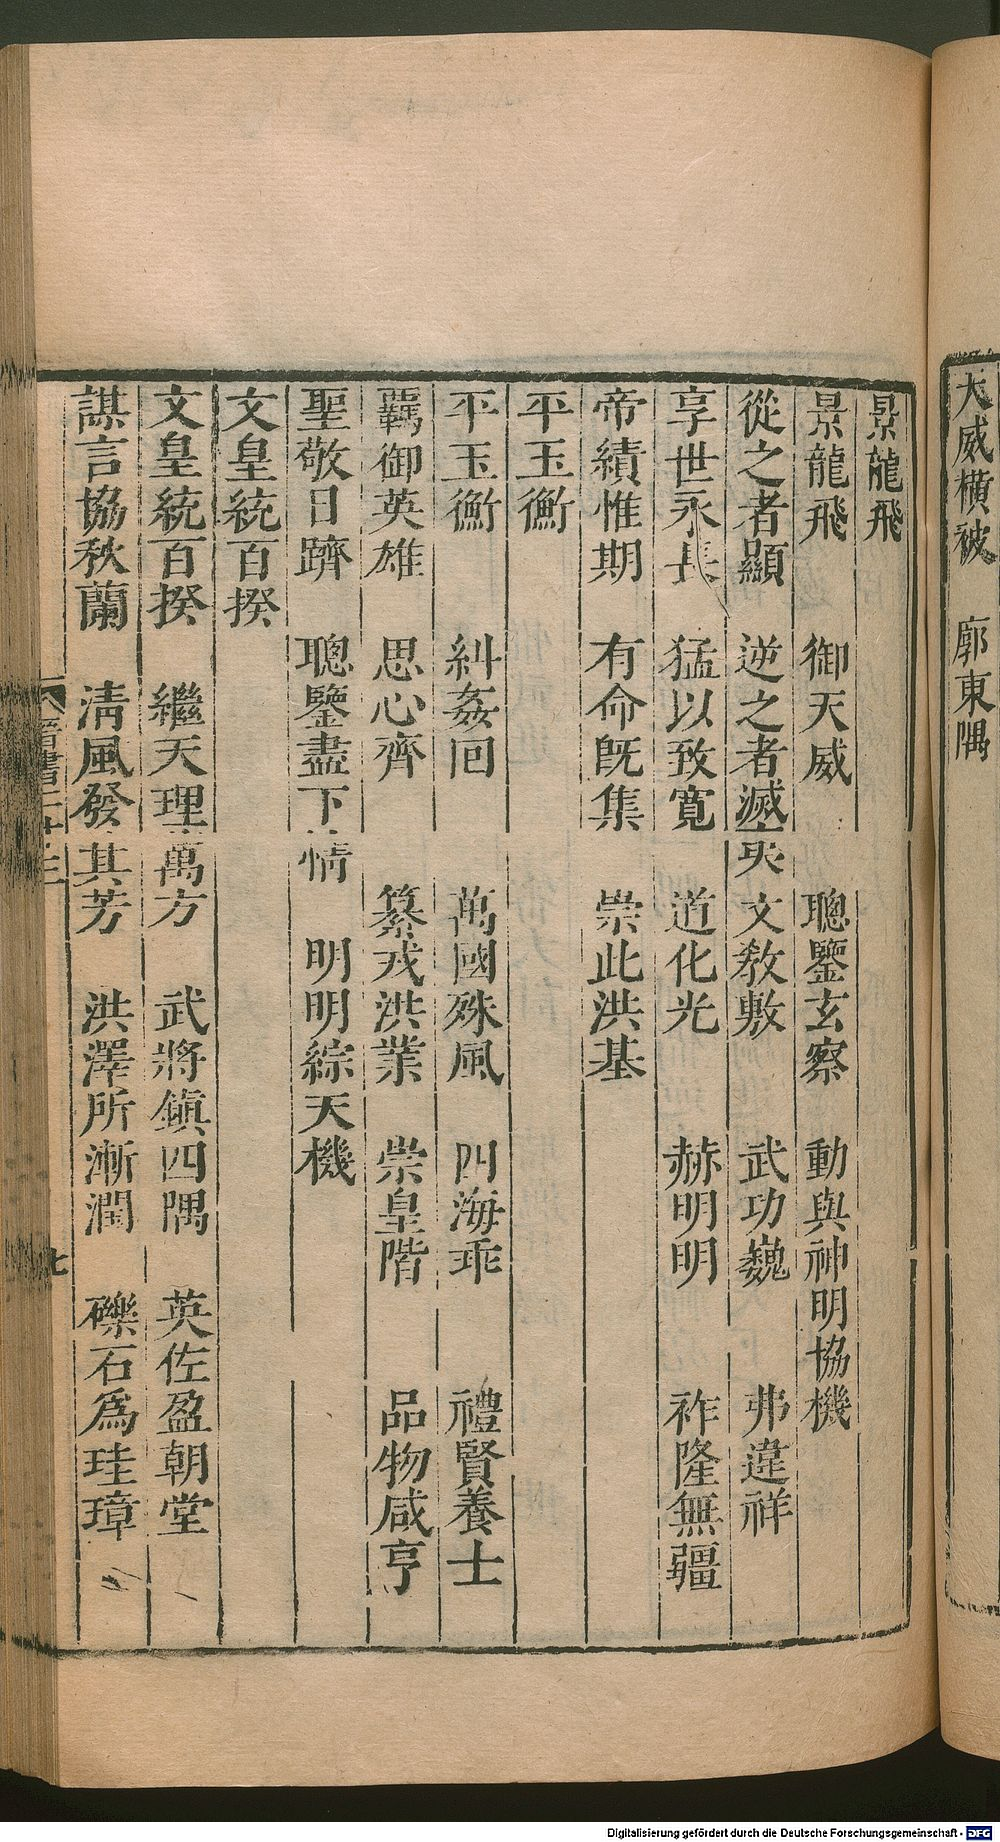 大威橫被　廓東隅
景龍飛
景龍飛　御天威　聰鑒玄察　動與神明協機
從之者顯　逆之者滅夷　文敎敷　武功巍　弗違祥
享世永長　猛以致寬　道化光　赫明明　祚隆無疆
帝績惟期　有命旣集　崇此洪基
平玉衡
平玉衡　糾姦回　萬國殊風　四海乖　禮賢養士
羈御英雄　思心齊　纂戎洪業　崇皇階　品物咸亨
聖敬日躋　聰鑒盡下情　明明綜天機
文皇統百揆
文皇統百揆　繼天理萬方　武將鎮四隅　英佐盈朝堂
謀言協秋蘭　淸風發其芳　洪澤所漸潤　礫石爲珪璋
晉書二十三
七
Digitalisierung gefördert durch die Deutsche Forschungsgemeinschaft - DFG